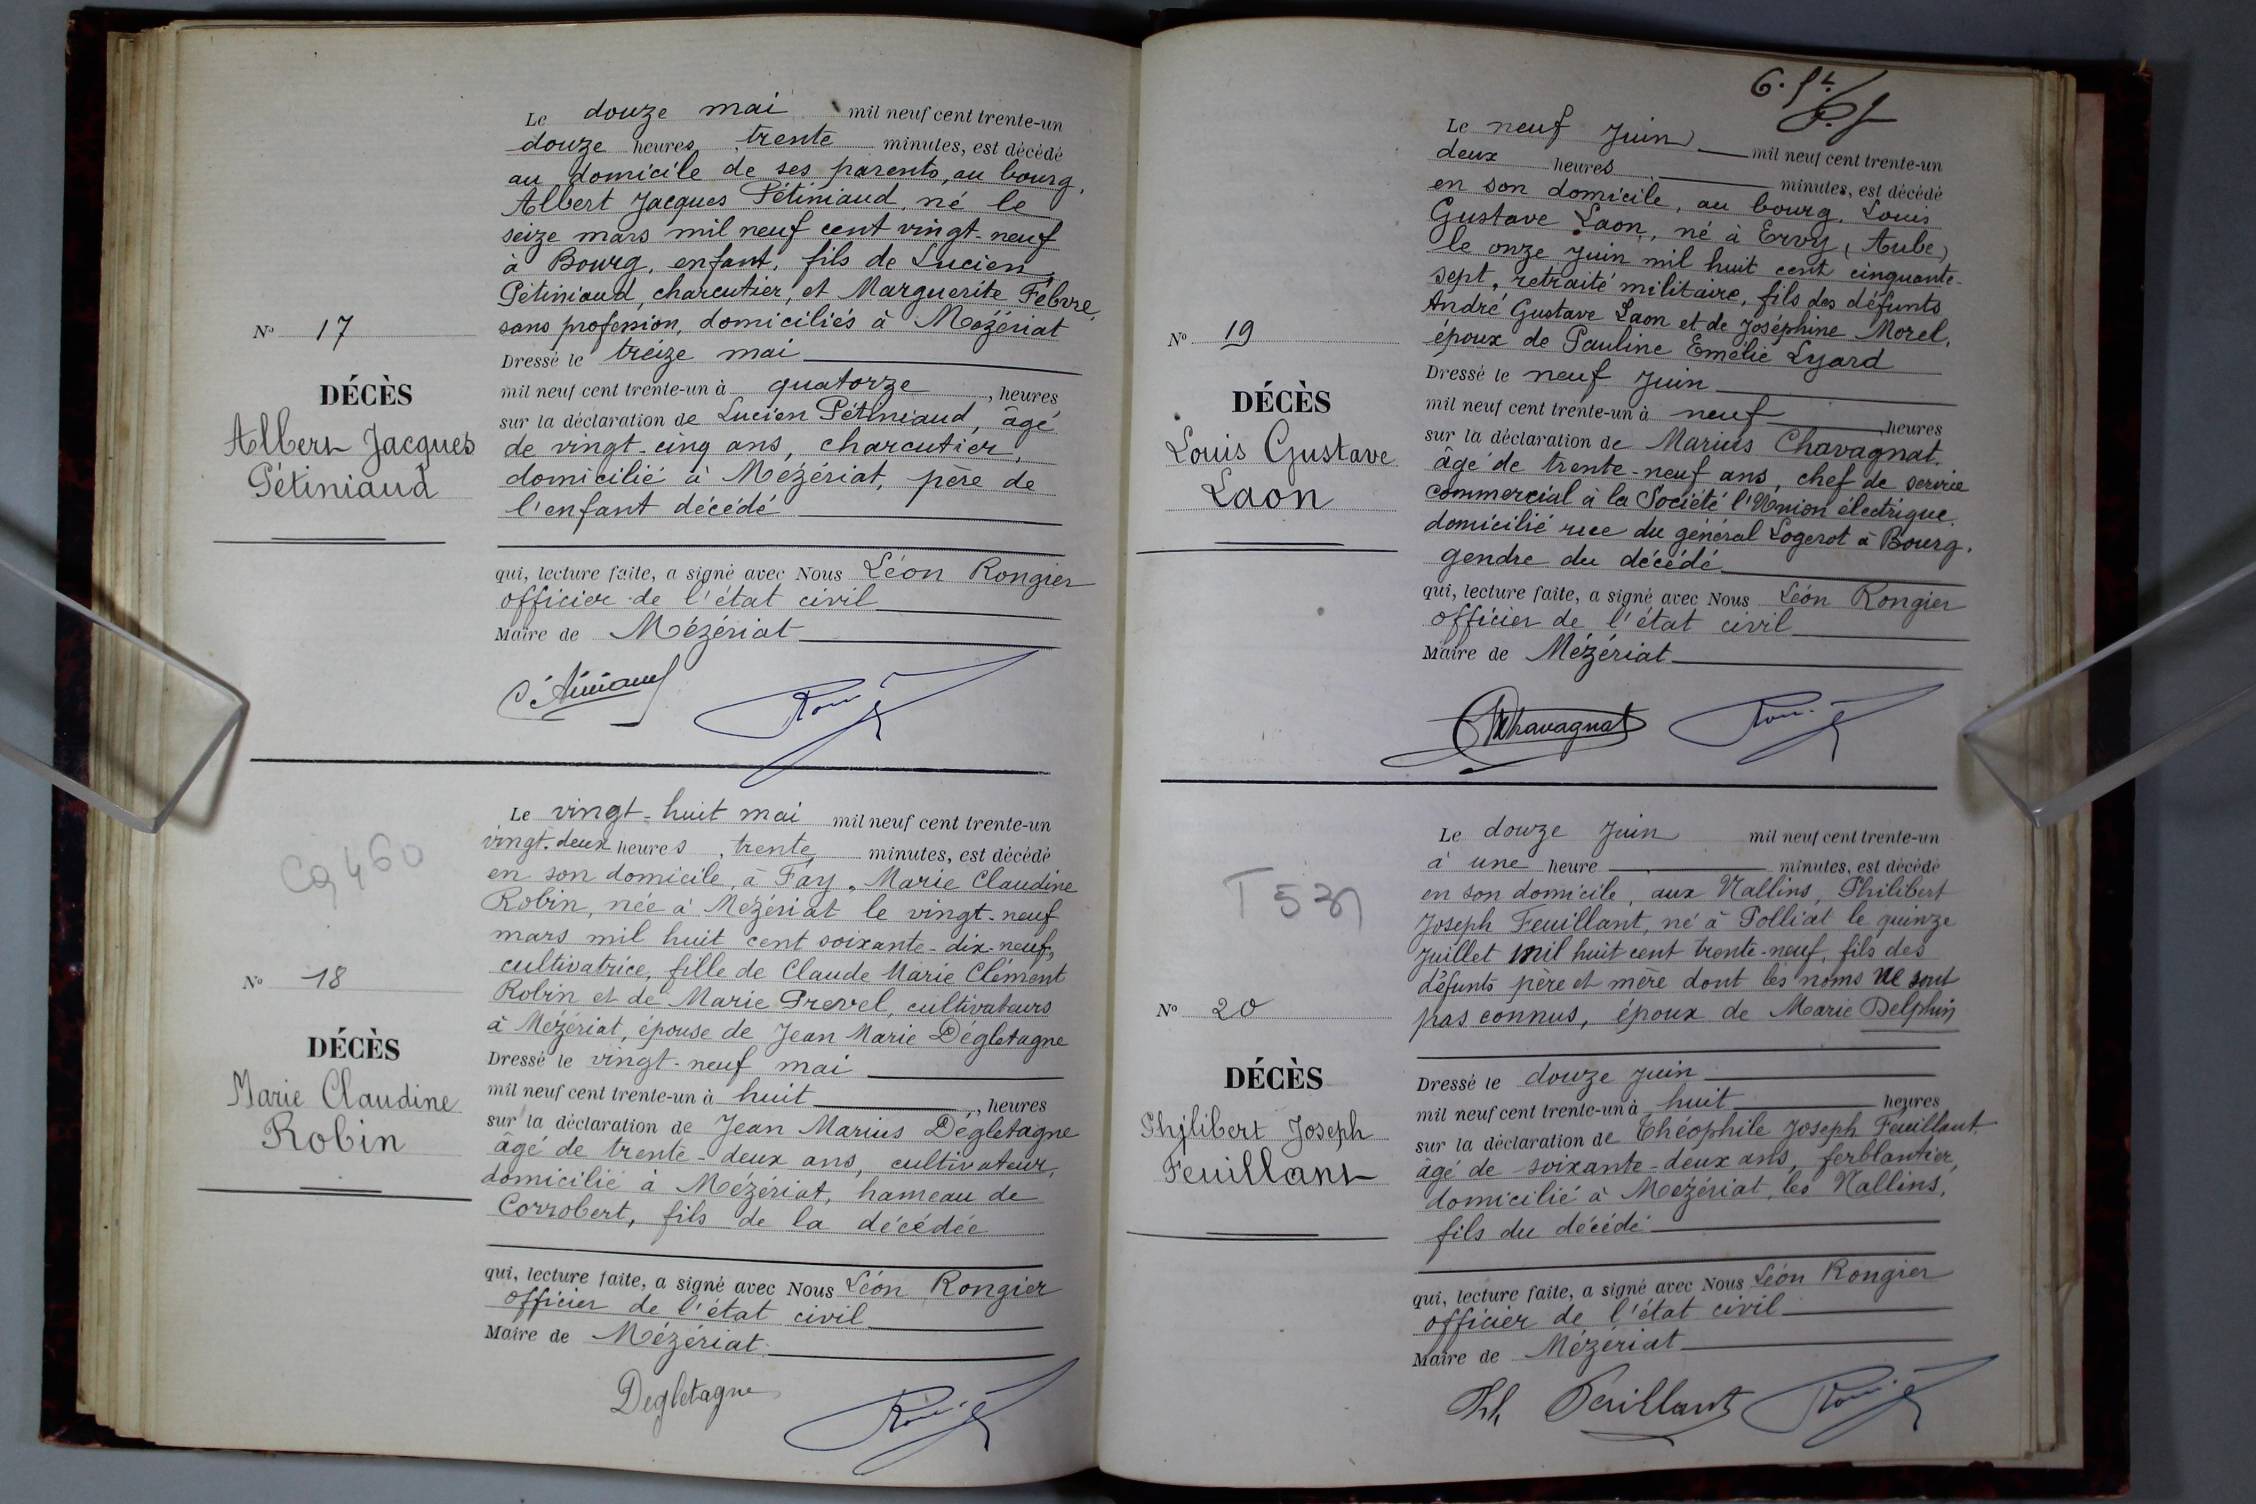 Le douze mai mil neuf cent trente-un
douze heures, trente minutes, est décédé
au domicile de ses parents, au bourg,
Albert Jacques Pétiniaud, né le
seize mars mil neuf cent vingt-neuf
à Bourg, enfant, fils de Lucien
Pétiniaud, charcutier, et Marguerite Febvre,
sans profession, domiciliés à Mézériat
N° 17
Dressé le treize mai
DÉCÈS
mil neuf cent trente-un à quatorze, heures
Albert Jacques
sur la déclaration de Lucien Pétiniaud, âgé
de vingt-cinq ans, charcutier,
Pétiniaud
domicilié à Mézériat, père de
l'enfant décédé
qui, lecture faite, a signé avec Nous Léon Rongier
officier de l'état civil
Maire de Mézériat
Le vingt-huit mai mil neuf cent trente-un
vingt-deux heures, trente minutes, est décédé
Cg 460
en son domicile, à Fay, Marie Claudine
Robin, née à Mézériat le vingt-neuf
mars mil huit cent soixante-dix-neuf,
cultivatrice, fille de Claude Marie Clément
N° 18
Robin et de Marie Prevel, cultivateurs
à Mézériat, épouse de Jean Marie Dégletagne
DÉCÈS
Dressé le vingt-neuf mai
Marie Claudine
mil neuf cent trente-un à huit, heures
Robin
sur la déclaration de Jean Marius Dégletagne
âgé de trente-deux ans, cultivateur,
domicilié à Mézériat, hameau de
Corrobert, fils de la décédée
qui, lecture faite, a signé avec Nous Léon Rongier
officier de l'état civil
Maire de Mézériat
Degletagne
Le neuf Juin mil neuf cent trente-un
deux heures minutes, est décédé
en son domicile, au bourg, Louis
Gustave Laon, né à Ervy (Aube)
le onze Juin mil huit cent cinquante-
sept, retraité militaire, fils des défunts
André Gustave Laon et de Joséphine Morel,
N° 19
époux de Pauline Emélie Lyard
Dressé le neuf Juin
DÉCÈS
mil neuf cent trente-un à neuf heures
Louis Gustave
sur la déclaration de Marius Chavagnat,
âgé de trente-neuf ans, chef de service
Laon
commercial à la Société l'Union électrique,
domicilié rue du général Logerot à Bourg,
gendre du décédé
qui, lecture faite, a signé avec Nous Léon Rongier
officier de l'état civil
Maire de Mézériat
Chavagnat
Le douze Juin mil neuf cent trente-un
à une heure minutes, est décédé
en son domicile, aux Nallins, Philibert
Joseph Feuillant, né à Polliat le quinze
Juillet mil huit cent trente-neuf, fils des
défunts père et mère dont les noms ne sont
N° 20
pas connus, époux de Marie Delphin
DÉCÈS
Dressé le douze Juin
mil neuf cent trente-un à huit heures
Philibert Joseph
sur la déclaration de Théophile Joseph Feuillant
Feuillant
âgé de soixante-deux ans, ferblantier,
domicilié à Mézériat, les Nallins,
fils du décédé
qui, lecture faite, a signé avec Nous Léon Rongier
officier de l'état civil
Maire de Mézériat
Th Feuillant